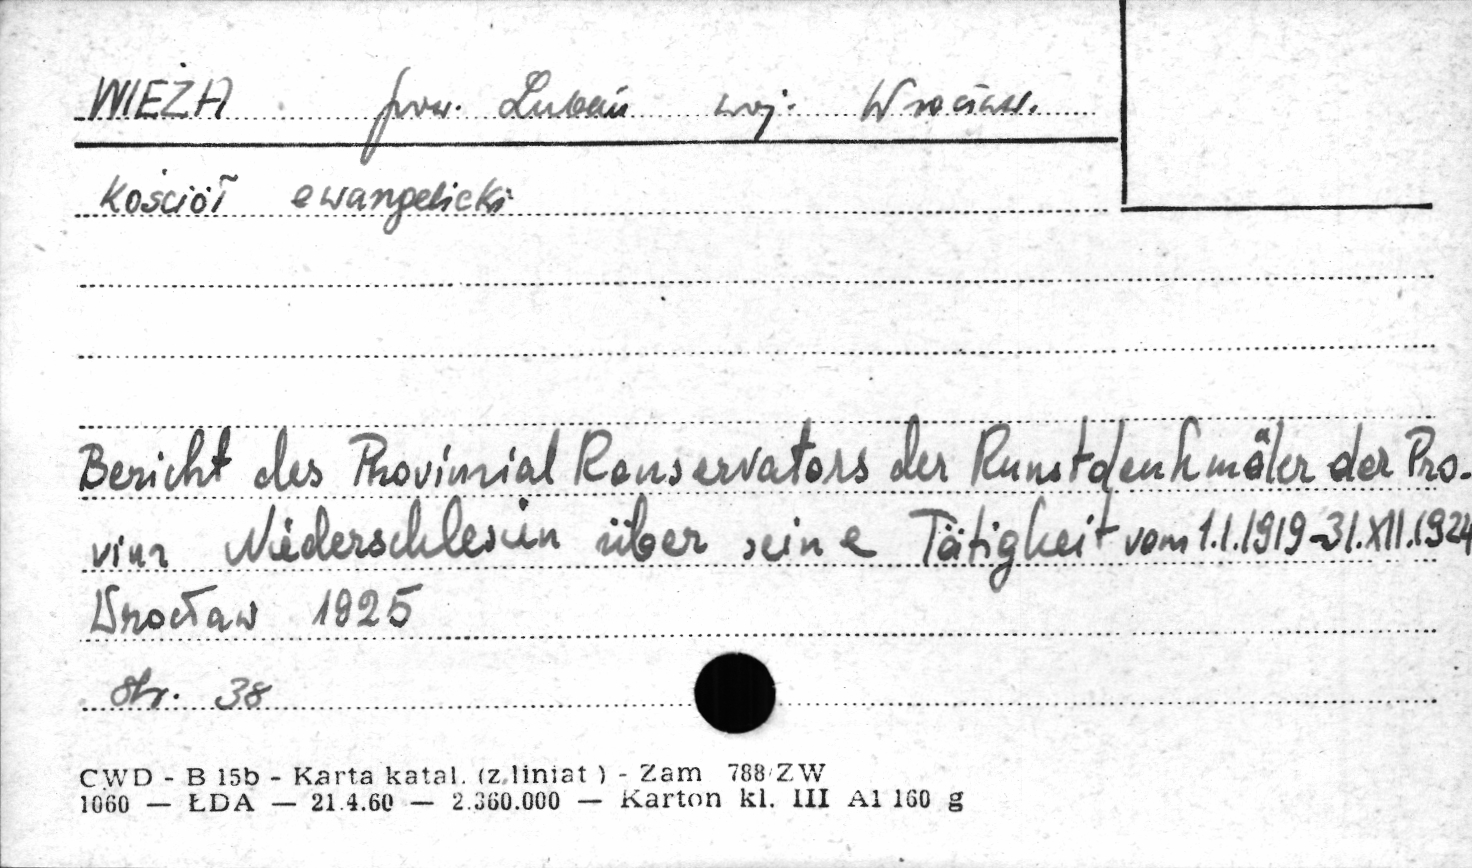 WIEŻA pow. Lubań woj. Wrocław.
Kościół ewangelicki
Bericht des Provinzial Konservators der Kunstdenkmäler der Pro-
vinz Niederschlesien über seine Tätigkeit vom 1.I.1919-31.XII.1924
Wrocław 1925
str. 38
CWD - B 15b - Karta katal. (z.liniat ) - Zam 788/ZW
1060 — ŁDA — 21.4.60 — 2.360.000 — Karton kl. III A1 160 g